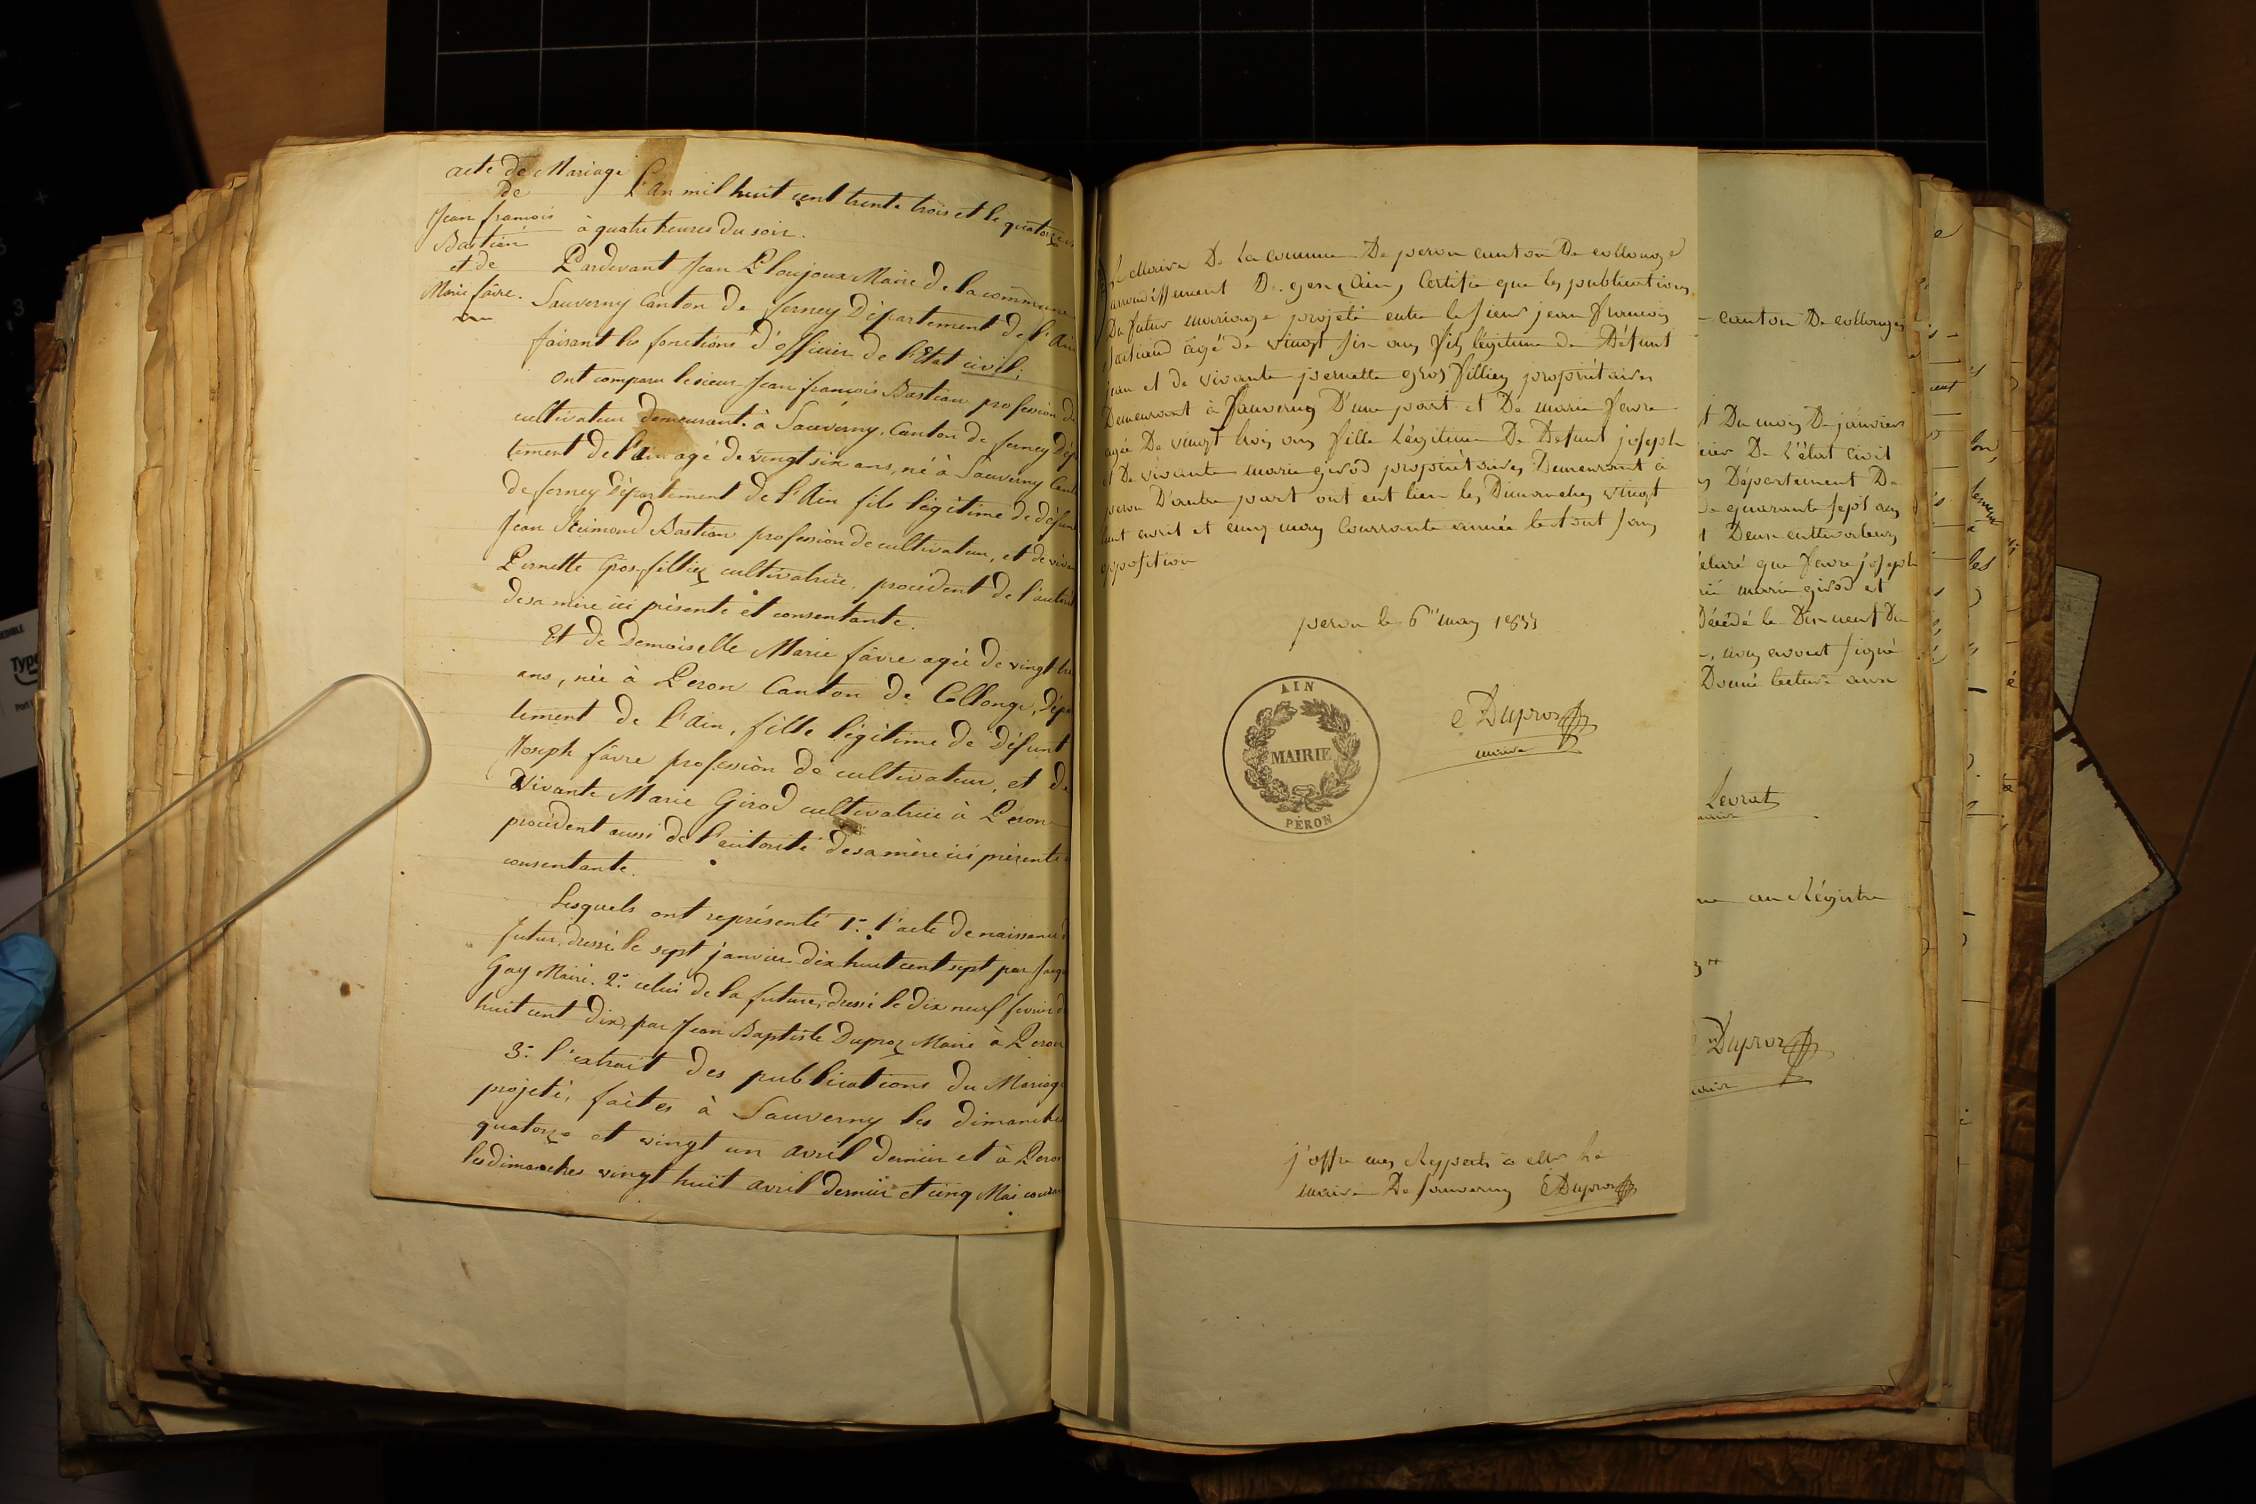 acte de Mariage
de
Jean françois
Bastian
et de
Marie fâvre.
L'an mil huit cent trente trois et le quatorze
à quatre heures du soir.
Pardevant Jean Ploujoux Maire de la commune
Sauverny Canton de ferney Département de l'Ain
faisant les fonctions d'officier de l'Etat civil;
ont comparu le sieur Jean françois Bastian profession de
cultivateur demeurant à Sauverny, Canton de ferney Dép
tement de l'Ain agé de vingt six ans, né à Sauverny Cant
de ferney Département de l'Ain fils légitime de défunt
Jean Reimond Bastian profession de cultivateur, et de vivan
Pernette Gros-filliez cultivatrice. procédent de l'autorit
de sa mère ici présente et consentante.
Et de Demoiselle Marie fâvre agée de vingt tr
ans, née à Peron Canton de Collonge, Dépa
tement de l'Ain, fille légitime de Défunt
Joseph fâvre profession de cultivateur, et de
Vivante Marie Girod cultivatrice à Peron
procédent aussi de l'autorité de sa mère ici présente
consentante.
Lesquels ont représenté 1º. l'acte de naissance
futur, dressé le sept janvier dix huit cent sept par Jaq
Gay Maire. 2º. celui de la future, dressé le dix neuf fevrier d
huit cent dix, par Jean Baptiste Duproz Maire à Peron
3º. l'extrait des publications du Mariage
projeté, faites à Sauverny les dimanches
quatorze et vingt un avril dernier et à Peron
les dimanches vingt huit avril dernier et cinq Mai couran
Le Maire De la commune De peron canton De collonge
arrondissement De gex (Ain) Certifie que les publications
Du futur mariage projeté entre le sieur jean françois
bastiand âgé de vingt six ans fils légitime de Défunt
jean et de vivante pernette gros filliez propriétaires
Demeurant à Sauverny D'une part et De marie favre
agée De vingt trois ans fille Légitime De Defunt joseph
et De vivante marie girod propriétaires Demeurant à
peron D'autre part ont eut lieu les Dimanches vingt
huit avril et cinq may Courrante année le tout sans
opposition
peron le 6 may 1833
AIN
MAIRIE
PÉRON
Duproz
maire
j'offre mes Respects à Mr le
maire De sauverny Duproz
canton De collonges
Du mois De janvier
De L'état Civil
Département De
quarante sept ans
Deux cultivateurs
que favre joseph
marie girod et
Décédé le Dix neuf Du
avons signé
Donné lecture aux
Levrat
maire
au Régistre
Duproz
maire